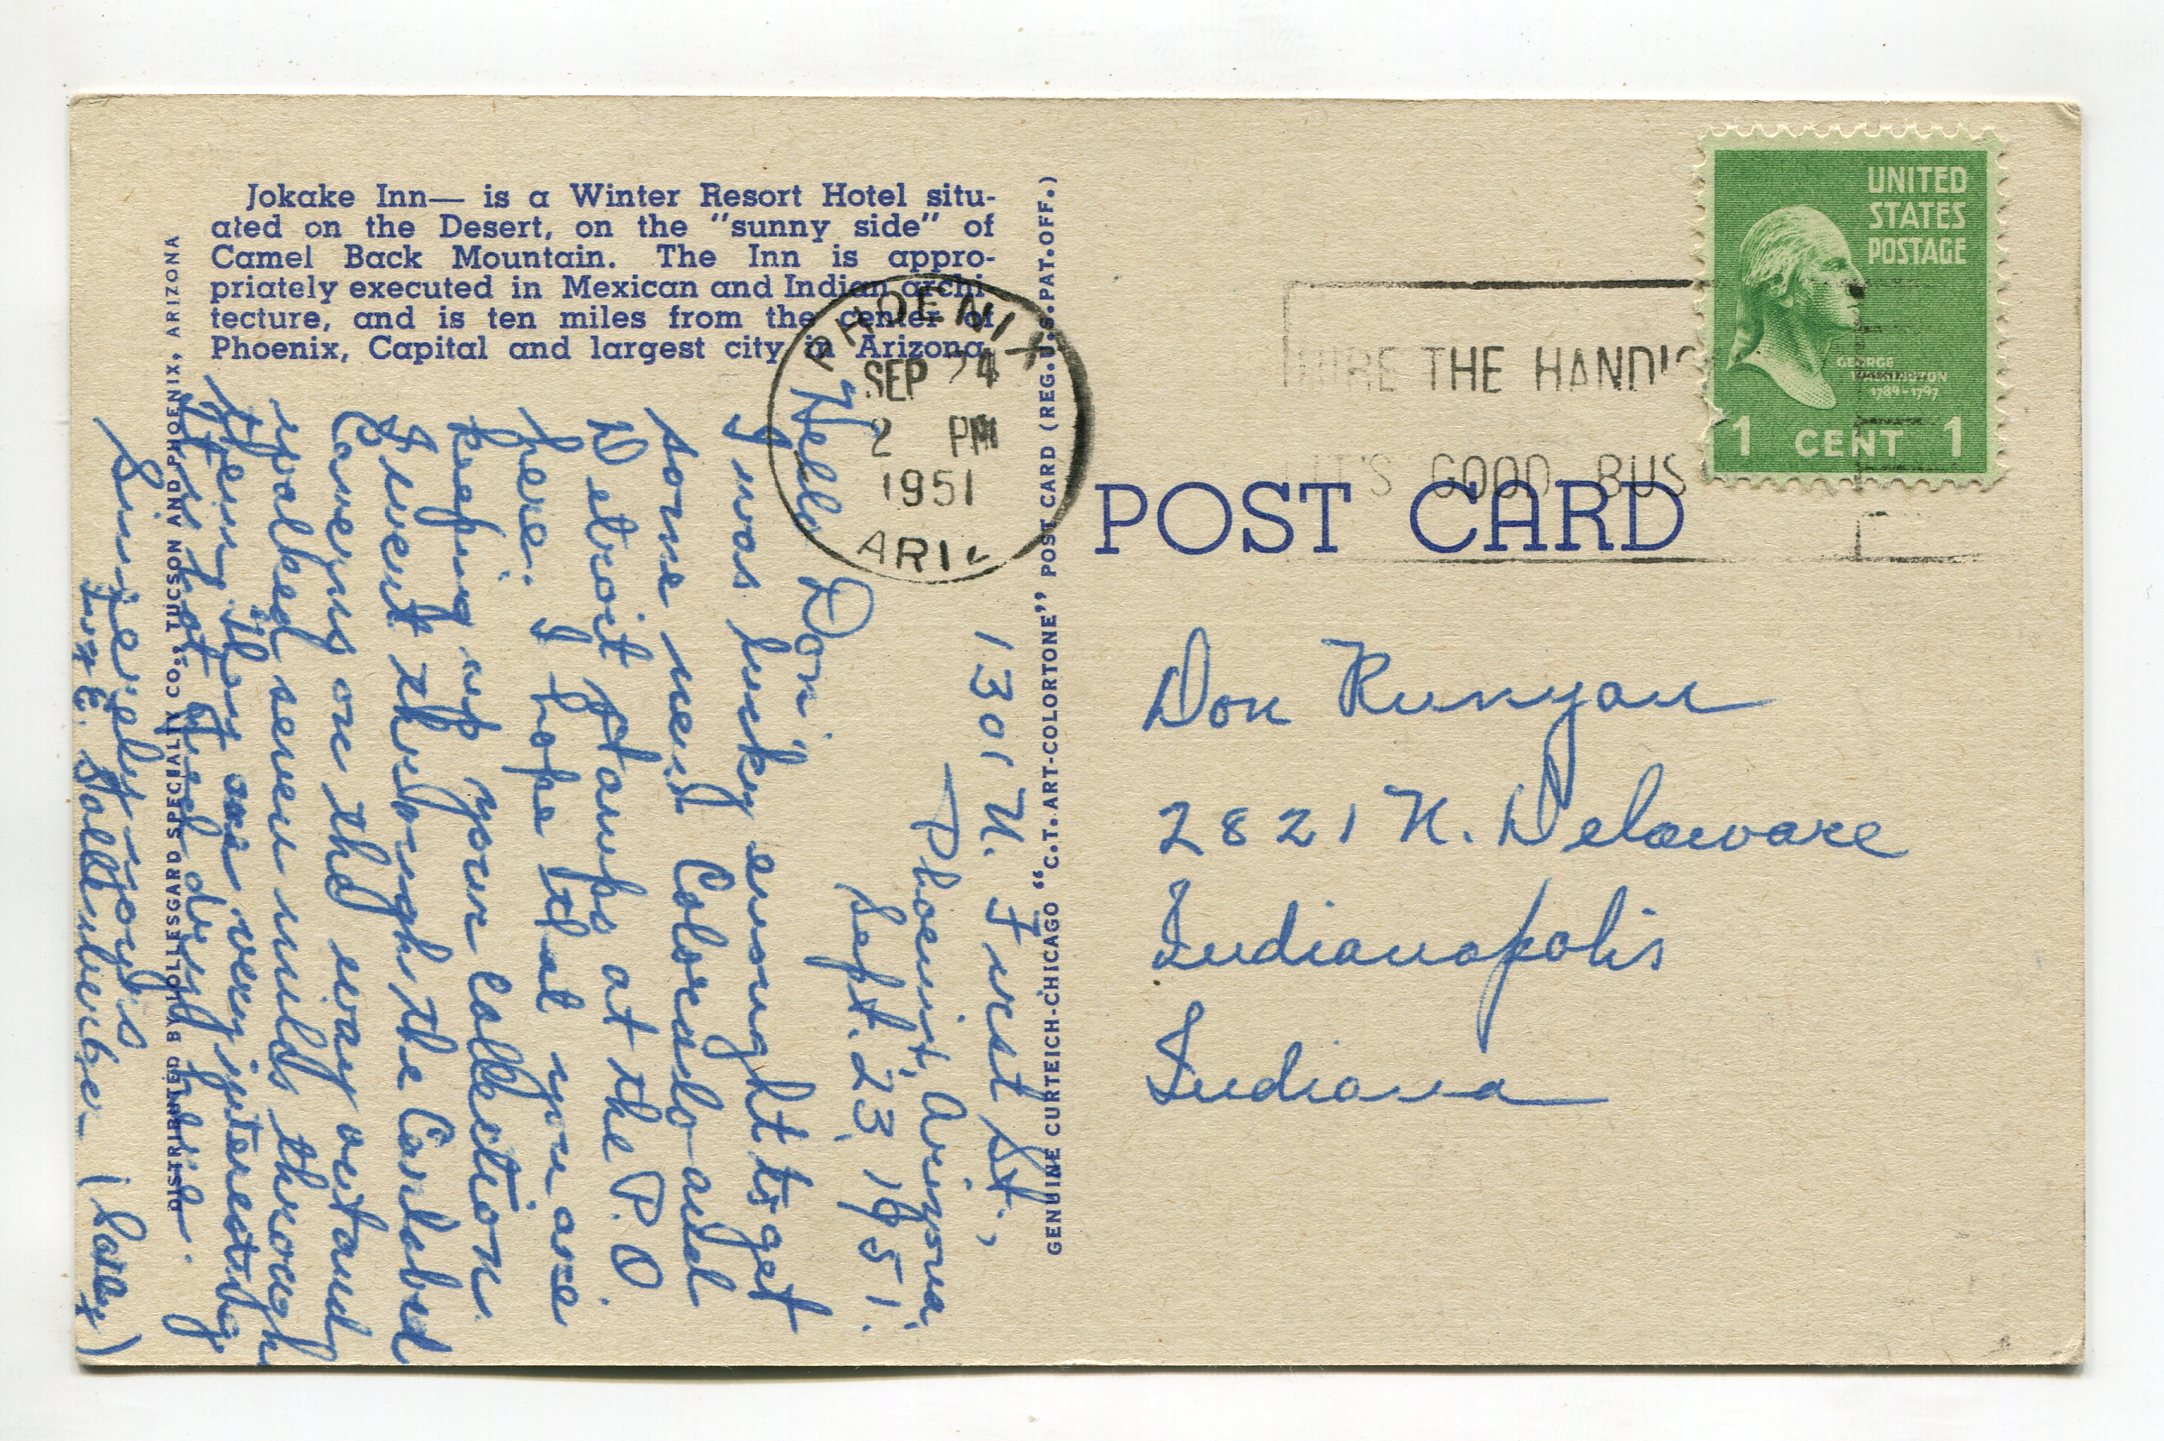 Jokake Inn— is a Winter Resort Hotel situ-
ated on the Desert, on the "sunny side" of
Camel Back Mountain. The Inn is appro-
priately executed in Mexican and Indian archi-
tecture, and is ten miles from the center of
Phoenix, Capital and largest city in Arizona.
DISTRIBUTED BY LOLLESGARD SPECIALTY CO., TUCSON AND PHOENIX, ARIZONA
1301 N. First St.,
Phoenix, Arizona,
Sept. 23, 1951.
Hello Don,
I was lucky enought to get
some neut Colorado and
Detroit stamps at the P.O.
here. I hope that you are
keeping up your collection.
I went through the Carlsbad
Caverns on the way out and
walked seven miles through
them. They are very interesting.
It is hot and dry here.
Sincerely yours
E. Sallenberger (Sally)
GENUINE CURTEICH-CHICAGO "C.T. ART-COLORTONE" POST CARD (REG. U.S. PAT. OFF.)
PHOENIX
SEP 24
2 PM
1951
ARIZ
HIRE THE HANDIC
IT'S GOOD BUS
UNITED
STATES
POSTAGE
GEORGE
WASHINGTON
1789-1797
1 CENT 1
POST CARD
Don Runyan
2821 N. Delaware
Indianapolis
Indiana